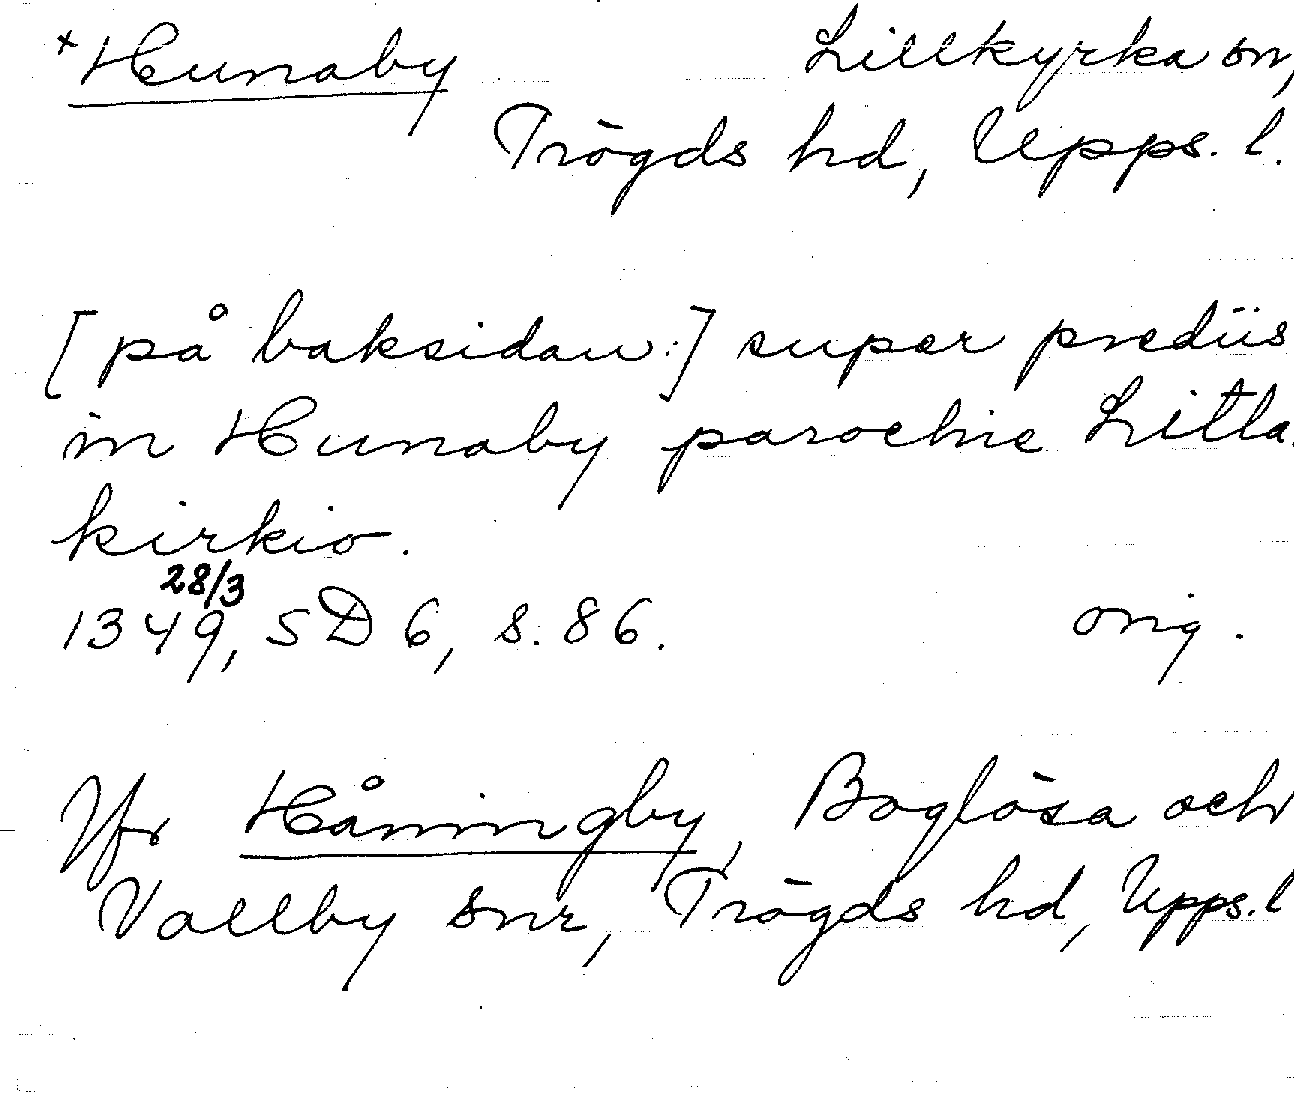 +Hunaby Lillkyrka sn,
Trögds hd, Upps. l.
[på baksidan:] super prediis
in Hunaby parochie Litla
kirkio.
28/3
1349, SD 6, s. 86. orig.
Jfr Håningby, Boglösa och
Vallby snr, Trögds hd, Upps. l